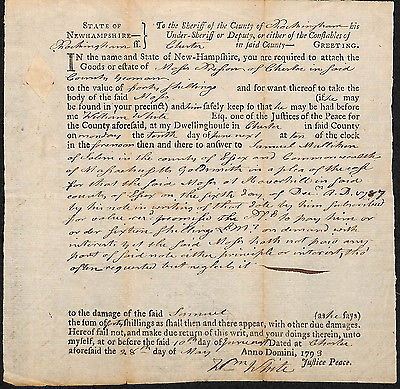 STATE OF
NEWHAMPSHIRE
Rockingham ſſ.
To the Sheriff of the County of Rockingham his
Under-Sheriff or Deputy, or either of the Constables of
Chester in said County
GREETING.
IN the name and State of New-Hampſhire, you are required to attach the
Goods or estate of Moſs of Chester in said
County yeoman
to the value of forty shillings and for want thereof to take the
body of the said Moſs (if he may
be found in your precinct) and him ſafely keep so that he may be had before
me William White Esq. one of the Justices of the Peace for
the County aforesaid, at my Dwellinghouse in Chester in said County
on monday the tenth day of June next at ten of the clock
in the forenoon then and there to answer to Samuel
of Salem in the county of Eſsex and Commonwealth
of Maſsachusetts Goldsmith in a plea of the case
for that the said Moſs at Haverhill in said
county of Eſsex on the sixth day of Decr A.D. 1787
by his note in writing of that date by him subscribed
for value recd promised the to pay him or
order sixteen shillings LM on demand with
interest yet the said Moſs hath not paid any
part of said note either principle or interest tho
often requested but neglects it
to the damage of the said Samuel (as he says)
the ſum of forty ſhillings as ſhall then and there appear, with other due damages.
Hereof fail not, and make due return of this writ, and your doings therein, unto
myself, at or before said 10th day of June next Dated at Chester
aforesaid the 28th day of May Anno Domini, 1793
Wm White Justice Peace.